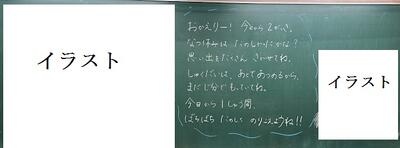 イラスト
おかえりー! 今日から2がっき。
なつ休みは たのしかったかな?
思い出をたくさん きかせてね。
しゅくだいは、あとであつめるから、
まだじ分でもっていてね。
今日から1しゅう間、
ぼちぼち たのしく のりこえようね!!
イラスト